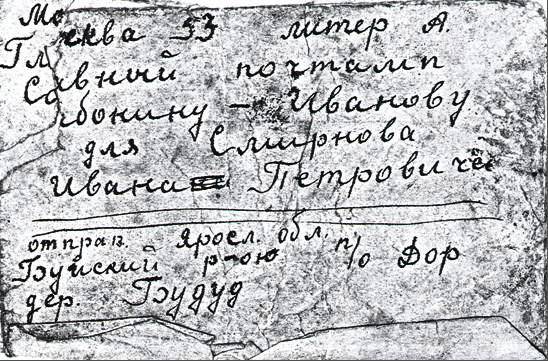 Москва 53 литер А.
Главный почтамп
Сабонину — Иванову
для Смирнова
Ивана Петровича
отправ. Яросл. обл.
Буйский р-ою п/о Дор
дер. Будуд